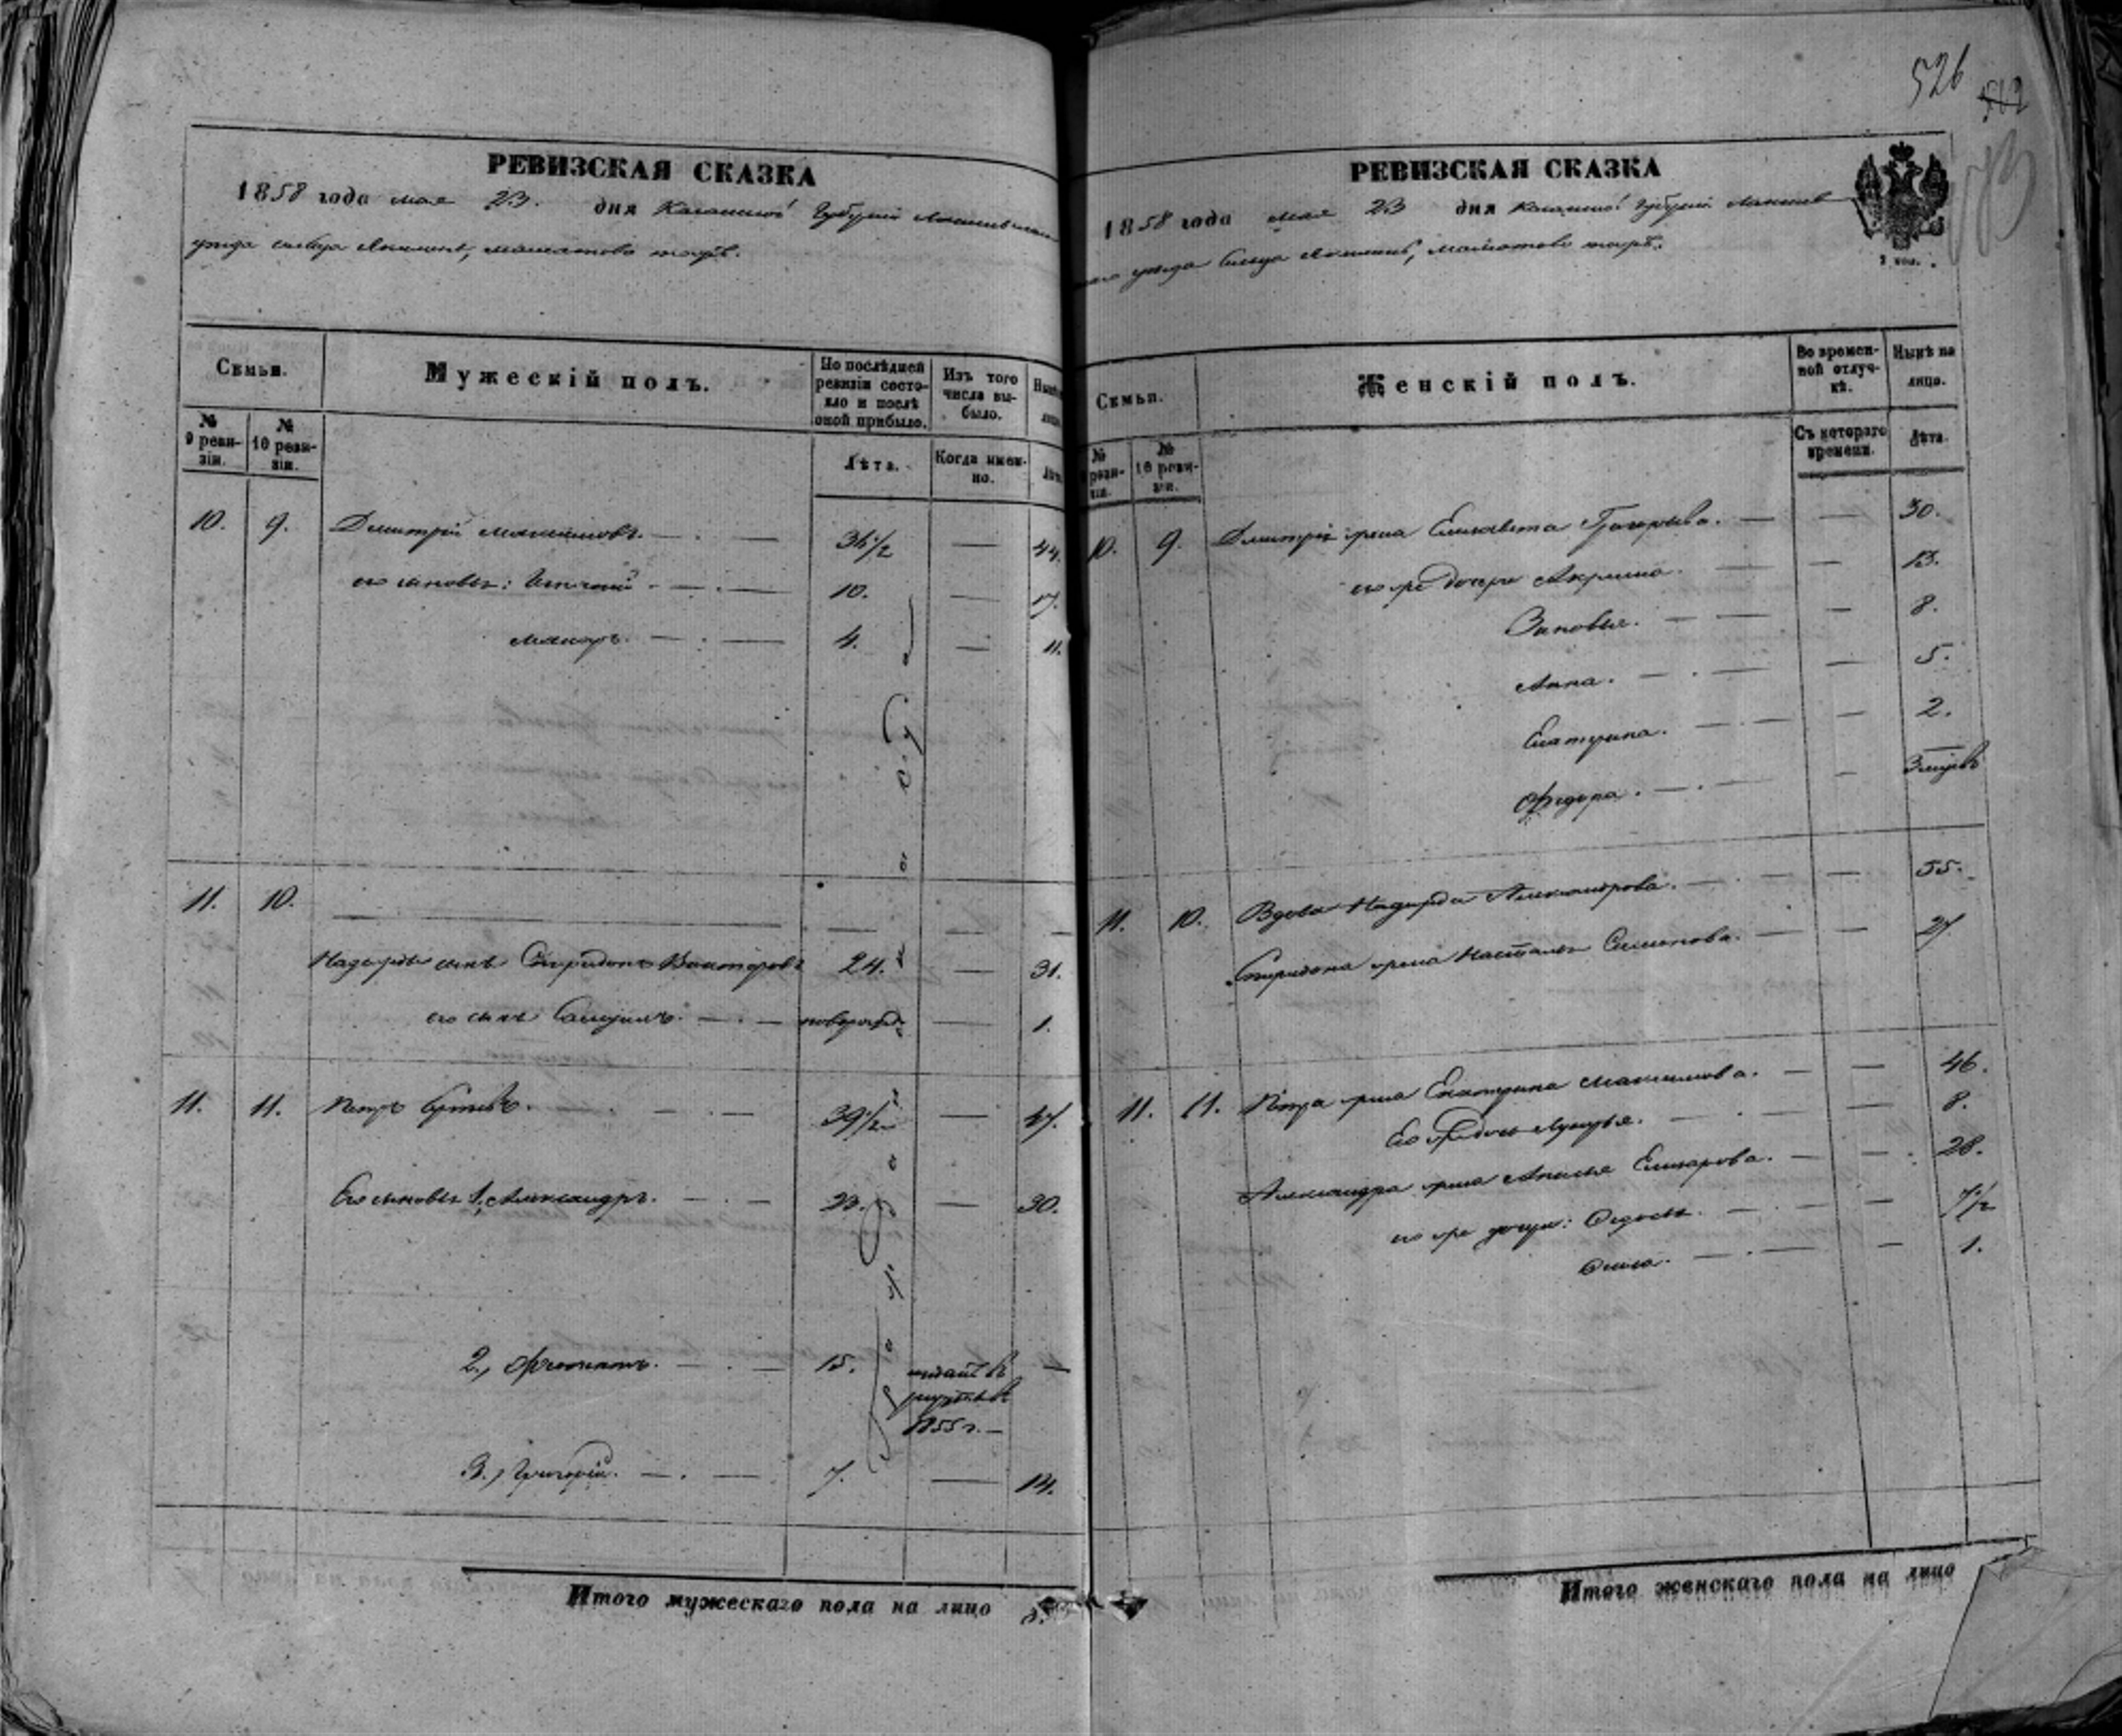 526
РЕВИЗСКАЯ СКАЗКА
1858 года мая 23. дня Казанской Губерніи Лаишевскаго
уѣзда сельца
Семьи.
Мужескій полъ.
По послѣдней ревизіи состояло и послѣ оной прибыло.
Изъ того числа выбыло.
№ 9 ревизіи.
№ 10 ревизіи.
Лѣта.
Когда именно.
10. 9. Дмитрій Максимовъ. 36 1/2 — 44.
его сыновья: 10. — 17.
Макаръ. 4. — 11.
11. 10.
Надежды сынъ Спиридонъ Викторовъ 24. — 31.
его сынъ Самуилъ. новорожд. — 1.
11. 11. Петръ Сергѣевъ. 39 1/2 — 47.
Его сыновья 1, Александръ. 23. — 30.
2, 15. отданъ въ —
рекруты въ
1855 г. —
3, Григорій. 7. — 14.
Итого мужескаго пола на лицо
РЕВИЗСКАЯ СКАЗКА
1858 года мая 23 дня Казанской Губерніи Лаишев
уѣзда сельца
Семьи.
Женскій полъ.
Во временной отлучкѣ.
Нынѣ на лицо.
№ 10 ревизіи.
Съ котораго времени.
Лѣта.
10. 9. Дмитрія жена Елизавета Григорьева. — 30.
его же дочери Акулина. — 13.
Зиновья. — 8.
Анна. — 5.
Екатерина. — 2.
Ѳедора. — 3 мѣсяцъ
11. 10. Вдова Надежда Александрова. — 55.
Спиридона жена Настасья Семенова. — 27
11. 11. Петра жена Екатерина Максимова. — 46.
Его же дочь Лукерья. — 8.
Александра жена Елизарова. — 28.
его же дочери: Ѳедосья. — 7 1/2
1.
Итого женскаго пола на лицо